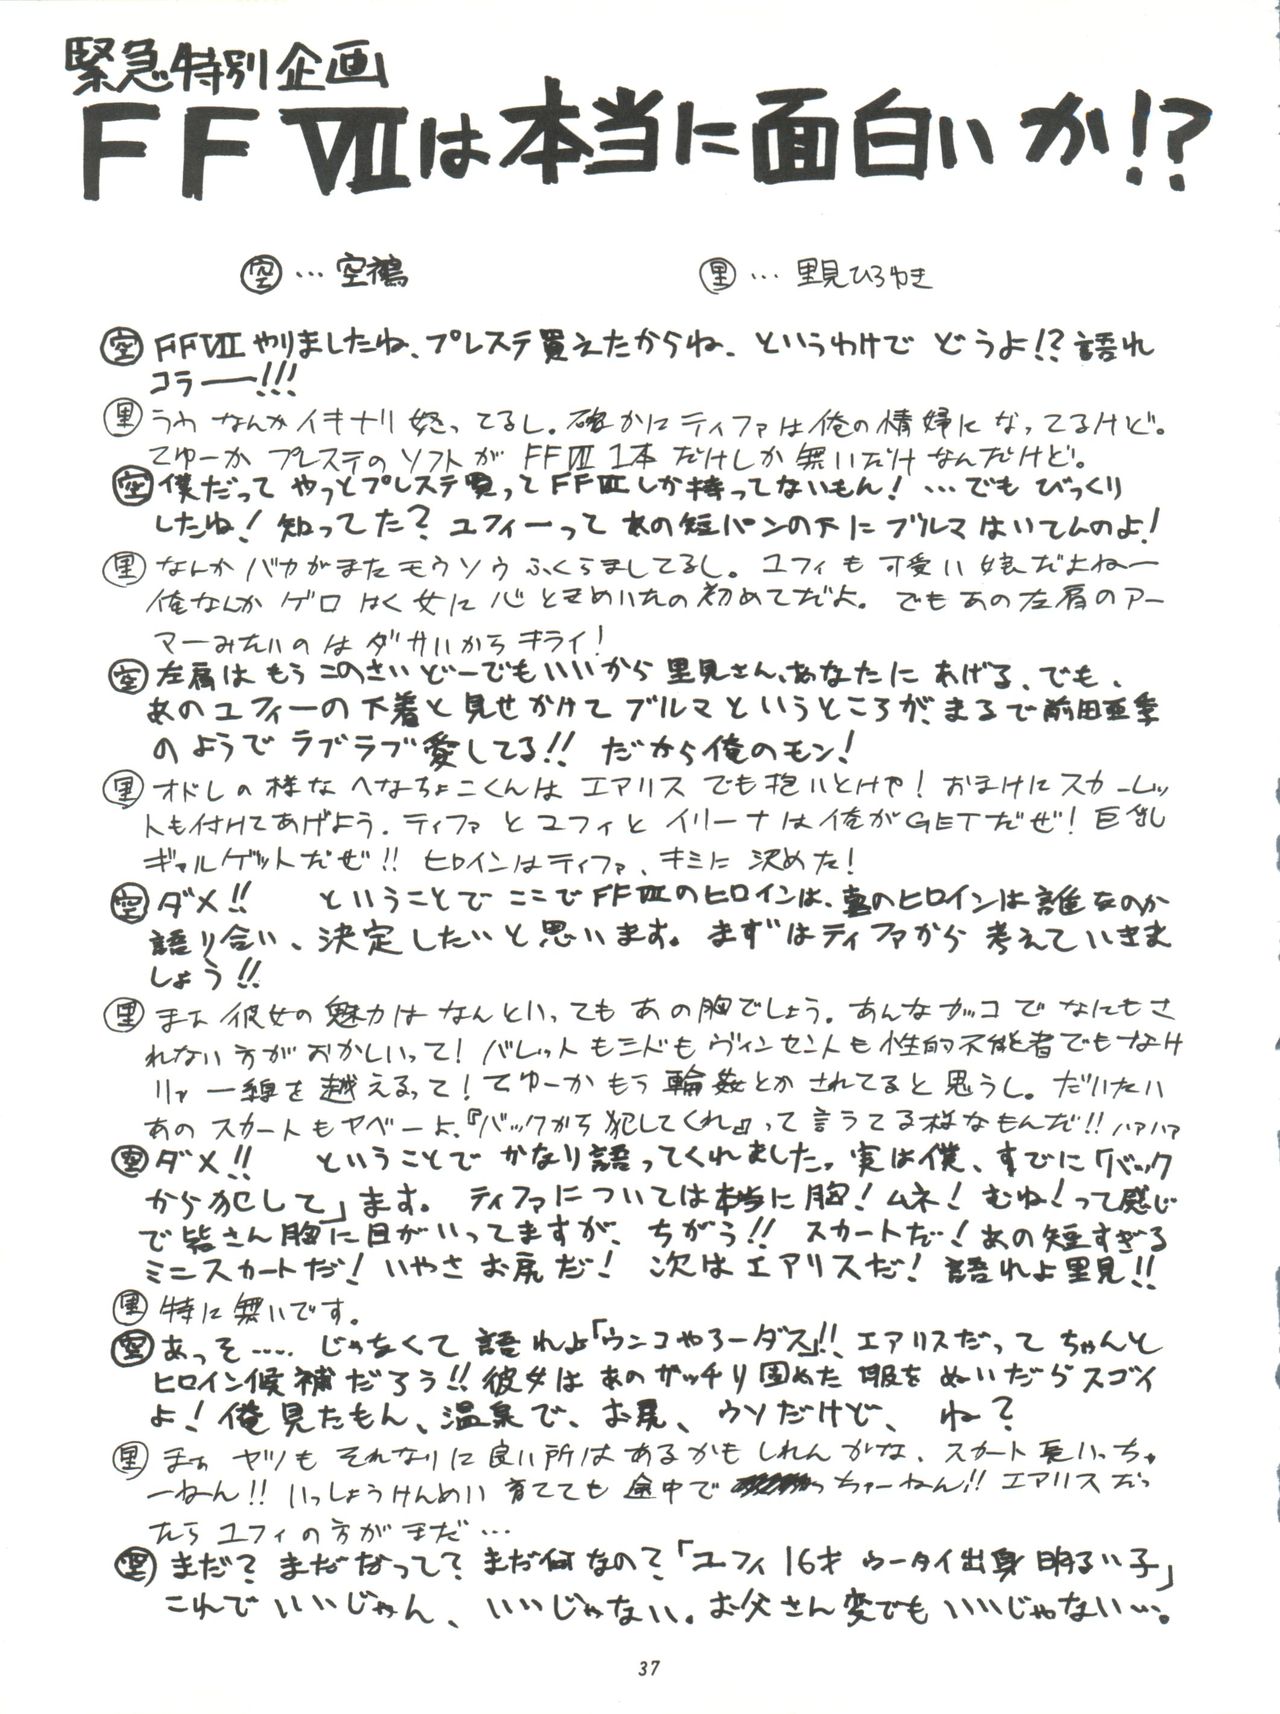 緊急特別企画
FFⅦは本当に面白いか!?
空…空鵺 里…里見ひろゆき
空 FFⅦやりましたね、プレステ買えたからね、というわけでどうよ!?語れ
コラー!!!
里 うわなんかイキナリ怒ってるし。確かにティファは俺の情婦になってるけど。
てゆーかプレステのソフトがFFⅦ1本だけしか無いだけなんだけど。
空 僕だってやっとプレステ買ってFFⅦしか持ってないもん!
でもあの左肩のアー
マーみたいのはダサいからキライ!
空 左肩はもうこのさいどーでもいいから里見さん、あなたにあげる、でも、
里 オドレの様なへなちょこくんはエアリスでも抱いとけや!おまけにスカーレッ
トも付けてあげよう。
ヒロインはティファ、キミに決めた!
空 ダメ!! ということでここでFFⅦのヒロインは、真のヒロインは誰なのか
語り合い、決定したいと思います。まずはティファから考えていきま
しょう!!
里 まぁ彼女の魅力はなんといってもあの胸でしょう。あんなカッコでなにもさ
れない方がおかしいって!バレットもシドもヴィンセントも性的不能者でもなけ
りゃ一線を越えるって!てゆーかもう輪姦とかされてると思うし。だいたい
あのスカートもヤベーよ、『バックから犯してくれ』って言うてる様なもんだ!!ハァハァ
空 ダメ!! ということでかなり語ってくれました。実は僕、すでに「バック
から犯して」ます。ティファについては本当に胸!ムネ!むね!って感じ
で皆さん胸に目がいってますが、ちがう!!スカートだ!あの短すぎる
ミニスカートだ!いやさお尻だ!次はエアリスだ!語れよ里見!!
里 特に無いです。
空 あっそ……じゃなくて語れよ「ウンコやろーダス」!!エアリスだってちゃんと
ヒロイン候補だろう!!彼女はあのガッチリ固めた服をぬいだらスゴイ
よ!俺見たもん、温泉で、お尻、ウソだけど、ね?
里 まぁヤツもそれなりに良い所はあるかもしれんがな、スカート長いっちゅ
ーねん!!いっしょうけんめい育てても途中で っちゃーねん!!エアリスだっ
たらユフィの方がまだ…
空 まだ?まだなって?まだ何なの?「ユフィ16才ウータイ出身明るい子」
これでいいじゃん、いいじゃない。お父さん変でもいいじゃない…。
37